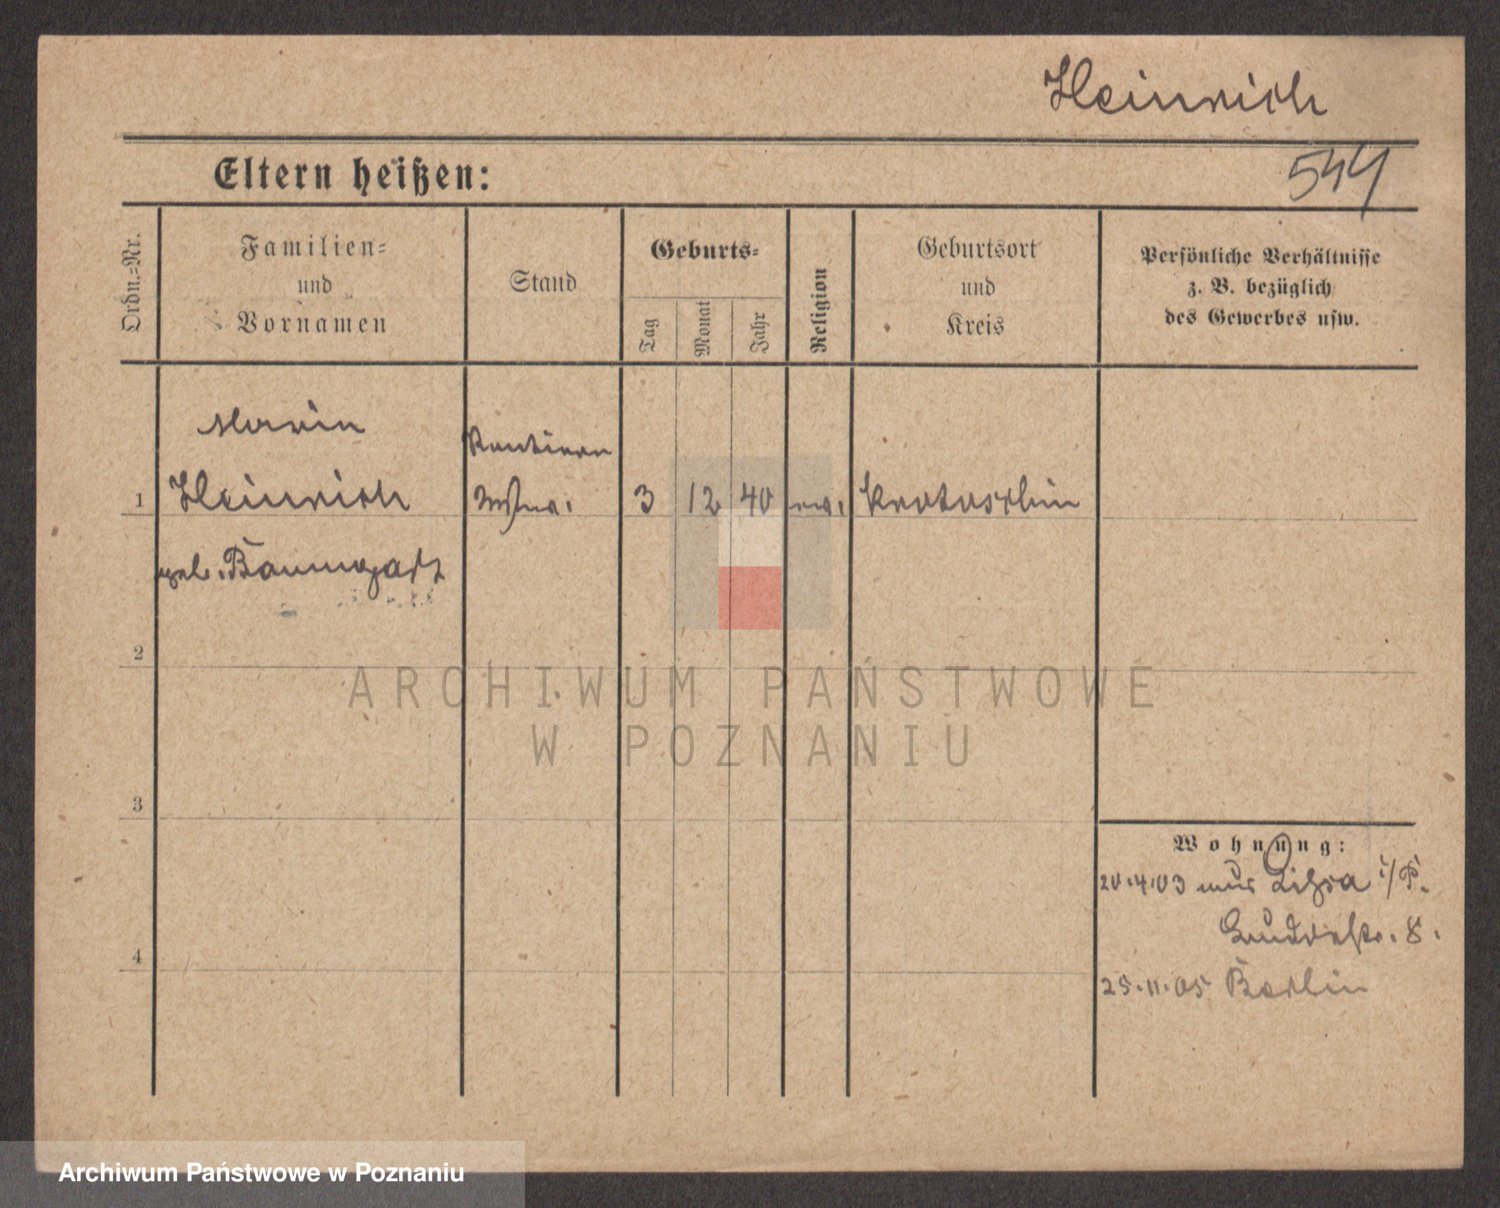 Heinrich
Eltern heißen:
544
Ordn.=Nr.
Familien=
und
Vornamen
Stand
Geburts=
Tag
Monat
Jahr
Religion
Geburtsort
und
Kreis
Persönliche Verhältnisse
z. B. bezüglich
des Gewerbes usw.
Marie
Rentiere
1
Heinrich
Wwe.
3
12
40
ev.
Krotoschin
geb. Baumgart
2
ARCHIWUM PAŃSTWOWE
W POZNANIU
3
Wohnung:
20.4.03 aus Lissa i/P.
8.
4
25.11.05 Berlin
Archiwum Państwowe w Poznaniu